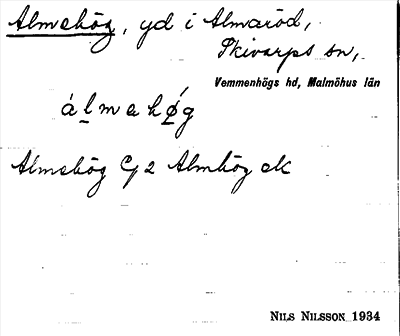 Almehög, yd i Almaröd,
Skivarps sn,
Vemmenhögs hd, Malmöhus län
álmahǿg
Almehög Cy2 Almhög ek
Nils Nilsson 1934